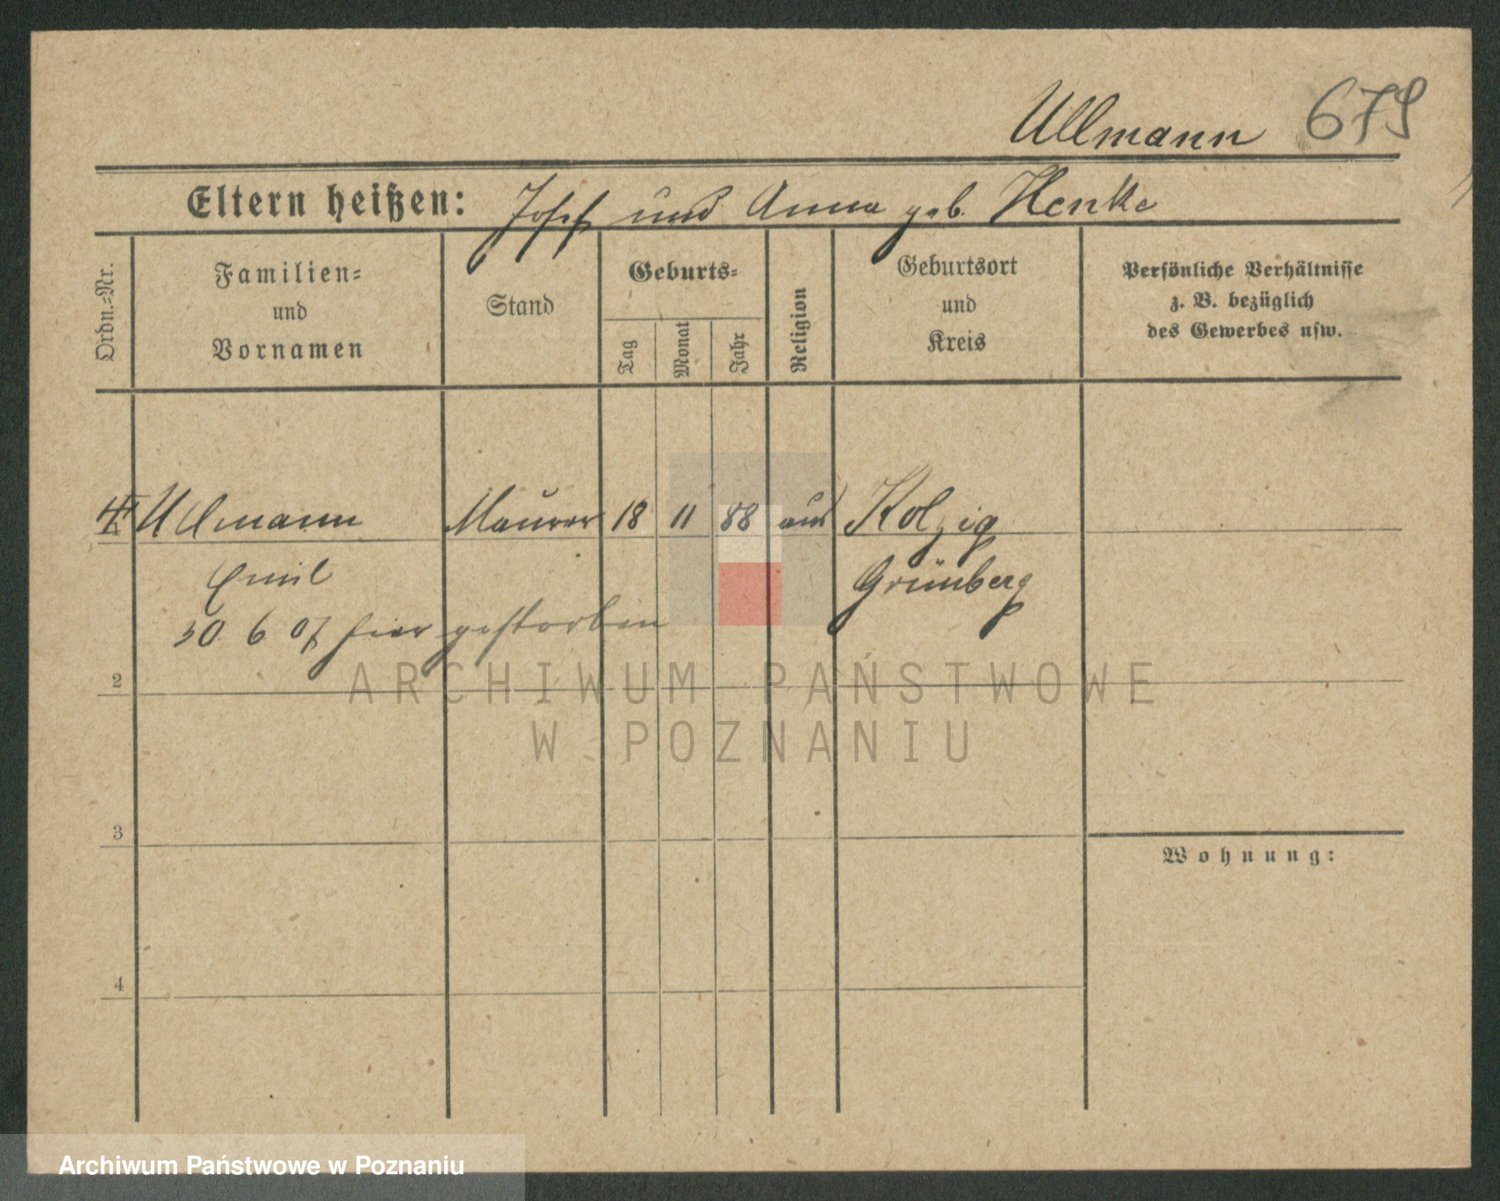 Ullmann 679
Eltern heißen: Josef und Anna geb. Henke
Ordn.-Nr.
Familien-
und
Vornamen
Stand
Geburts-
Tag
Monat
Jahr
Religion
Geburtsort
und
Kreis
Persönliche Verhältnisse
z. B. bezüglich
des Gewerbes usw.
Ullmann Maurer 18 11 88 Kolzig
Emil Grünberg
30 6 07 hier gestorben
ARCHIWUM PAŃSTWOWE
W POZNANIU
2
3
Wohnung:
4
Archiwum Państwowe w Poznaniu